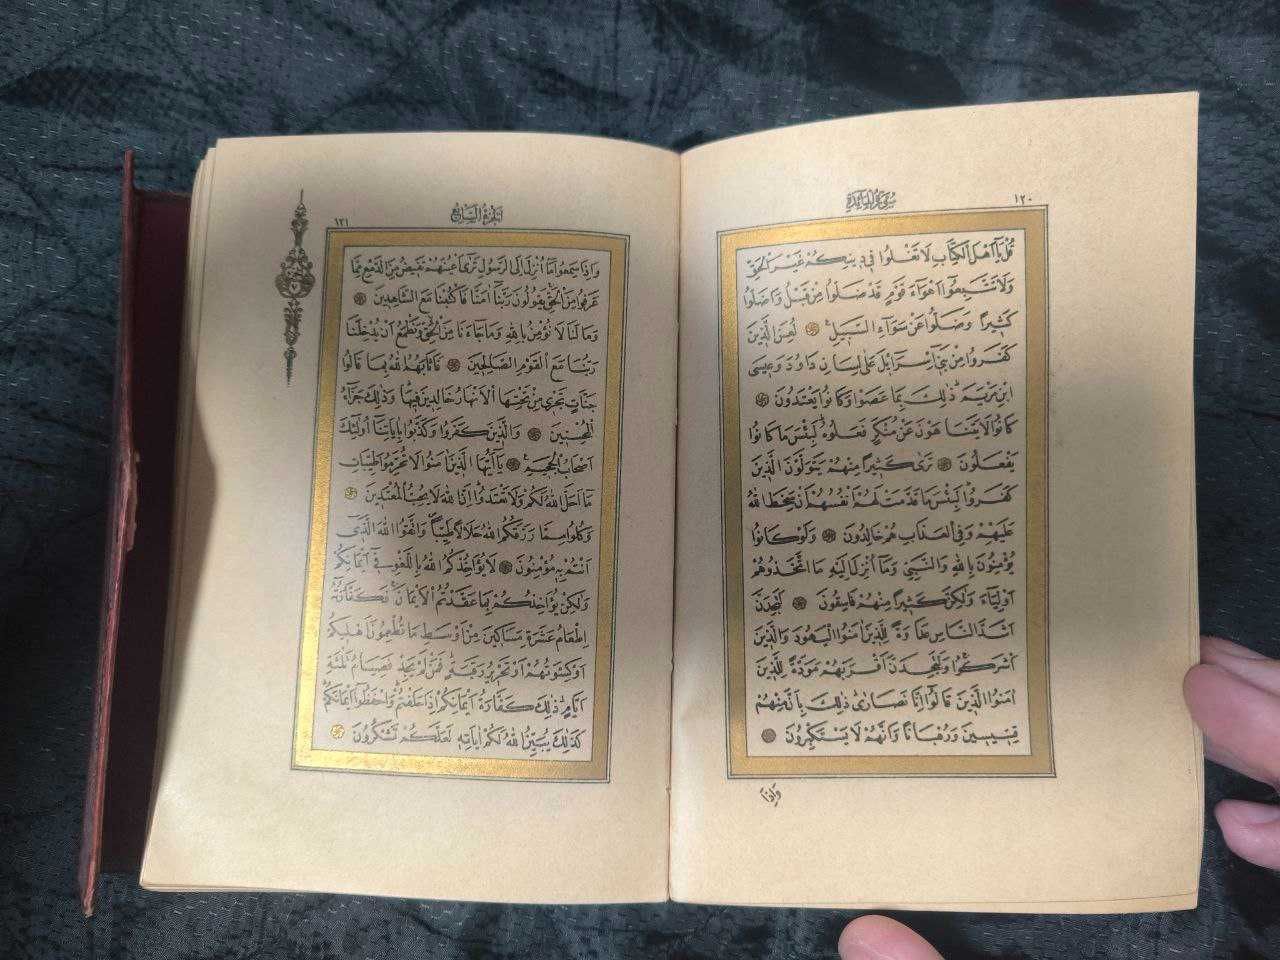 ١٢٠
سورة المائدة
قُلْ يَٓا اَهْلَ الْكِتَابِ لَا تَغْلُوا فٖي دٖينِكُمْ غَيْرَ الْحَقِّ
وَلَا تَتَّبِعُٓوا اَهْوَٓاءَ قَوْمٍ قَدْ ضَلُّوا مِنْ قَبْلُ وَاَضَلُّوا
كَثٖيراً وَضَلُّوا عَنْ سَوَٓاءِ السَّبٖيلِ لُعِنَ الَّذٖينَ
كَفَرُوا مِنْ بَنٖٓي اِسْرَٓائٖلَ عَلٰى لِسَانِ دَاوُدَ وَعٖيسَى
ابْنِ مَرْيَمَ ذٰلِكَ بِمَا عَصَوْا وَكَانُوا يَعْتَدُونَ
كَانُوا لَا يَتَنَاهَوْنَ عَنْ مُنْكَرٍ فَعَلُوهُ لَبِئْسَ مَا كَانُوا
يَفْعَلُونَ تَرٰى كَثٖيراً مِنْهُمْ يَتَوَلَّوْنَ الَّذٖينَ
كَفَرُوا لَبِئْسَ مَا قَدَّمَتْ لَهُمْ اَنْفُسُهُمْ اَنْ سَخِطَ اللّٰهُ
عَلَيْهِمْ وَفِي الْعَذَابِ هُمْ خَالِدُونَ وَلَوْ كَانُوا
يُؤْمِنُونَ بِاللّٰهِ وَالنَّبِيِّ وَمَٓا اُنْزِلَ اِلَيْهِ مَا اتَّخَذُوهُمْ
اَوْلِيَٓاءَ وَلٰكِنَّ كَثٖيراً مِنْهُمْ فَاسِقُونَ لَتَجِدَنَّ
اَشَدَّ النَّاسِ عَدَاوَةً لِلَّذٖينَ اٰمَنُوا الْيَهُودَ وَالَّذٖينَ
اَشْرَكُوا وَلَتَجِدَنَّ اَقْرَبَهُمْ مَوَدَّةً لِلَّذٖينَ
اٰمَنُوا الَّذٖينَ قَالُٓوا اِنَّا نَصَارٰى ذٰلِكَ بِاَنَّ مِنْهُمْ
قِسّٖيسٖينَ وَرُهْبَاناً وَاَنَّهُمْ لَا يَسْتَكْبِرُونَ
وَاِذَا
الجزء السابع
١٢١
وَاِذَا سَمِعُوا مَٓا اُنْزِلَ اِلَى الرَّسُولِ تَرٰٓى اَعْيُنَهُمْ تَفٖيضُ مِنَ الدَّمْعِ مِمَّا
عَرَفُوا مِنَ الْحَقِّ يَقُولُونَ رَبَّنَٓا اٰمَنَّا فَاكْتُبْنَا مَعَ الشَّاهِدٖينَ
وَمَا لَنَا لَا نُؤْمِنُ بِاللّٰهِ وَمَا جَٓاءَنَا مِنَ الْحَقِّ وَنَطْمَعُ اَنْ يُدْخِلَنَا
رَبُّنَا مَعَ الْقَوْمِ الصَّالِحٖينَ فَاَثَابَهُمُ اللّٰهُ بِمَا قَالُوا
جَنَّاتٍ تَجْرٖي مِنْ تَحْتِهَا الْاَنْهَارُ خَالِدٖينَ فٖيهَا وَذٰلِكَ جَزَٓاءُ
الْمُحْسِنٖينَ وَالَّذٖينَ كَفَرُوا وَكَذَّبُوا بِاٰيَاتِنَٓا اُولٰٓئِكَ
اَصْحَابُ الْجَحٖيمِ يَٓا اَيُّهَا الَّذٖينَ اٰمَنُوا لَا تُحَرِّمُوا طَيِّبَاتِ
مَٓا اَحَلَّ اللّٰهُ لَكُمْ وَلَا تَعْتَدُوا اِنَّ اللّٰهَ لَا يُحِبُّ الْمُعْتَدٖينَ
وَكُلُوا مِمَّا رَزَقَكُمُ اللّٰهُ حَلَالاً طَيِّباً وَاتَّقُوا اللّٰهَ الَّذٖٓي
اَنْتُمْ بِهٖ مُؤْمِنُونَ لَا يُؤَاخِذُكُمُ اللّٰهُ بِاللَّغْوِ فٖٓي اَيْمَانِكُمْ
وَلٰكِنْ يُؤَاخِذُكُمْ بِمَا عَقَّدْتُمُ الْاَيْمَانَ فَكَفَّارَتُهُٓ
اِطْعَامُ عَشَرَةِ مَسَاكٖينَ مِنْ اَوْسَطِ مَا تُطْعِمُونَ اَهْلٖيكُمْ
اَوْ كِسْوَتُهُمْ اَوْ تَحْرٖيرُ رَقَبَةٍ فَمَنْ لَمْ يَجِدْ فَصِيَامُ ثَلٰثَةِ
اَيَّامٍ ذٰلِكَ كَفَّارَةُ اَيْمَانِكُمْ اِذَا حَلَفْتُمْ وَاحْفَظُٓوا اَيْمَانَكُمْ
كَذٰلِكَ يُبَيِّنُ اللّٰهُ لَكُمْ اٰيَاتِهٖ لَعَلَّكُمْ تَشْكُرُونَ